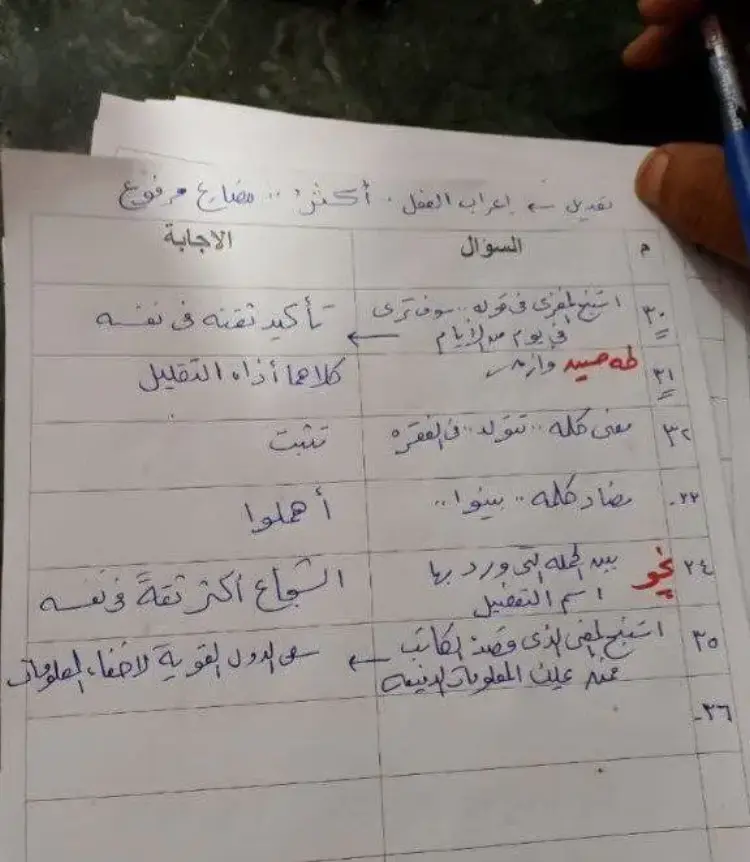 تعديل ← إعراب الفعل .. أكثر .. مضارع مرفوع
م السؤال الاجابة
٣٠ استنتج المغزى فى قوله .. سوف ترى
فى يوم من الأيام ← تأكيد ثقته فى نفسه
٣١ طه حسين كلاهما أداه التقليل
٣٢ معنى كلمه .. تتولد .. فى الفقره تثبت
٢٢- مضاد كلمه .. بينوا .. أهملوا
٢٤ نحو بين الجمله التى ورد بها
اسم التفضيل الشجاع أكثر ثقةً فى نفسه
٣٥ استنتج المغزى الذى قصده الكاتب
المعلومات ← سعى الدول القوية لاخفاء المعلومات
٣٦-